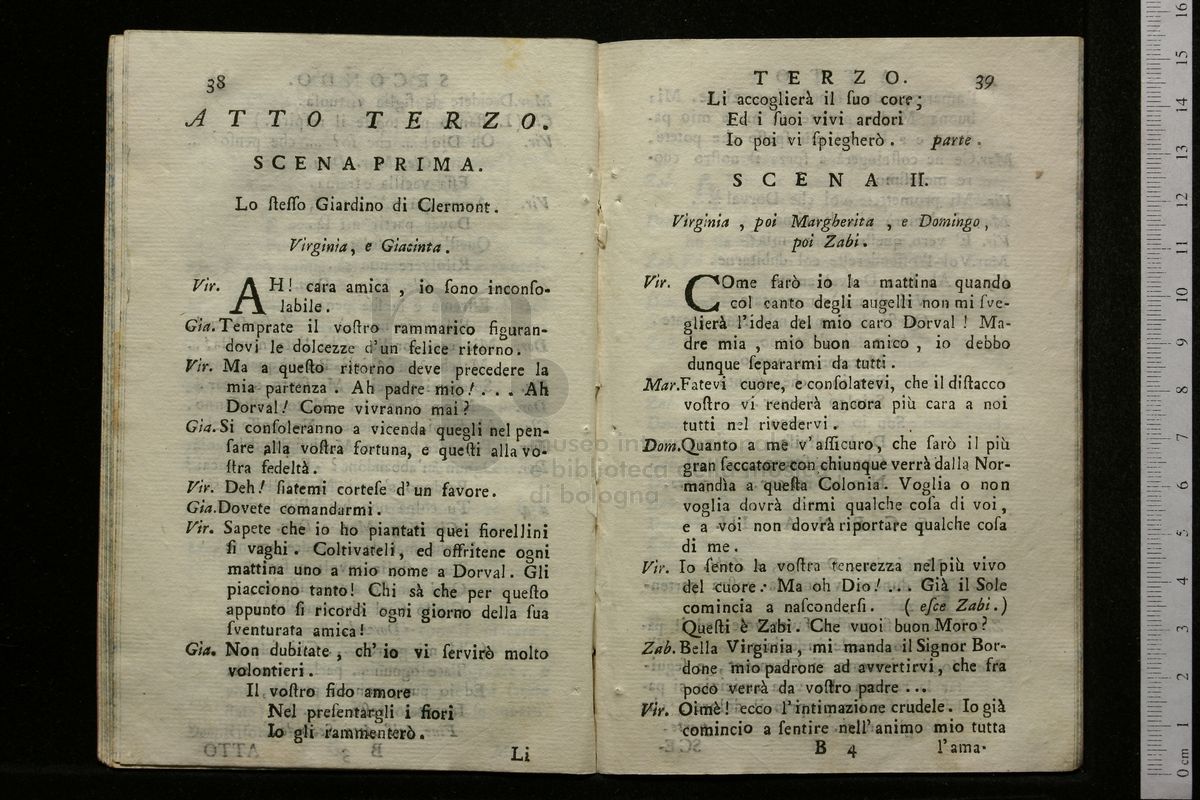 38
ATTO TERZO.
SCENA PRIMA.
Lo ſteſſo Giardino di Clermont.
Virginia, e Giacinta.
Vir. AH! cara amica , io ſono inconſo-
labile.
Gia. Temprate il voſtro rammarico figuran-
dovi le dolcezze d'un felice ritorno.
Vir. Ma a queſto ritorno deve precedere la
mia partenza . Ah padre mio! . . . Ah
Dorval! Come vivranno mai?
Gia. Si conſoleranno a vicenda quegli nel pen-
ſare alla voſtra fortuna, e queſti alla vo-
ſtra fedeltà.
Vir. Deh! ſiatemi corteſe d'un favore.
Gia. Dovete comandarmi.
Vir. Sapete che io ho piantati quei fiorellini
ſi vaghi. Coltivateli, ed offritene ogni
mattina uno a mio nome a Dorval. Gli
piacciono tanto! Chi sà che per queſto
appunto ſi ricordi ogni giorno della ſua
ſventurata amica!
Gia. Non dubitate , ch' io vi ſervirò molto
volontieri.
Il voſtro fido amore
Nel preſentargli i fiori
Io gli rammenterò.
Li
TERZO. 39
Li accoglierà il ſuo core;
Ed i ſuoi vivi ardori
Io poi vi ſpiegherò. parte.
SCENA II.
Virginia , poi Margherita , e Domingo,
poi Zabi.
Vir. COme farò io la mattina quando
col canto degli augelli non mi ſve-
glierà l'idea del mio caro Dorval! Ma-
dre mia , mio buon amico , io debbo
dunque ſepararmi da tutti.
Mar. Fatevi cuore, e conſolatevi, che il diſtacco
voſtro vi renderà ancora più cara a noi
tutti nel rivedervi.
Dom. Quanto a me v'aſſicuro, che ſarò il più
gran ſeccatore con chiunque verrà dalla Nor-
mandìa a queſta Colonia. Voglia o non
voglia dovrà dirmi qualche coſa di voi,
e a voi non dovrà riportare qualche coſa
di me.
Vir. Io ſento la voſtra tenerezza nel più vivo
del cuore: Ma oh Dio! ... Già il Sole
comincia a naſconderſi. ( eſce Zabi.)
Queſti è Zabi. Che vuoi buon Moro?
Zab. Bella Virginia, mi manda il Signor Bor-
done mio padrone ad avvertirvi, che fra
poco verrà da voſtro padre ...
Vir. Oimè! ecco l'intimazione crudele. Io già
comincio a ſentire nell' animo mio tutta
B 4 l'ama-
museo int
biblioteca
di bologna
0 cm 1 2 3 4 5 6 7 8 9 10 11 12 13 14 15 16